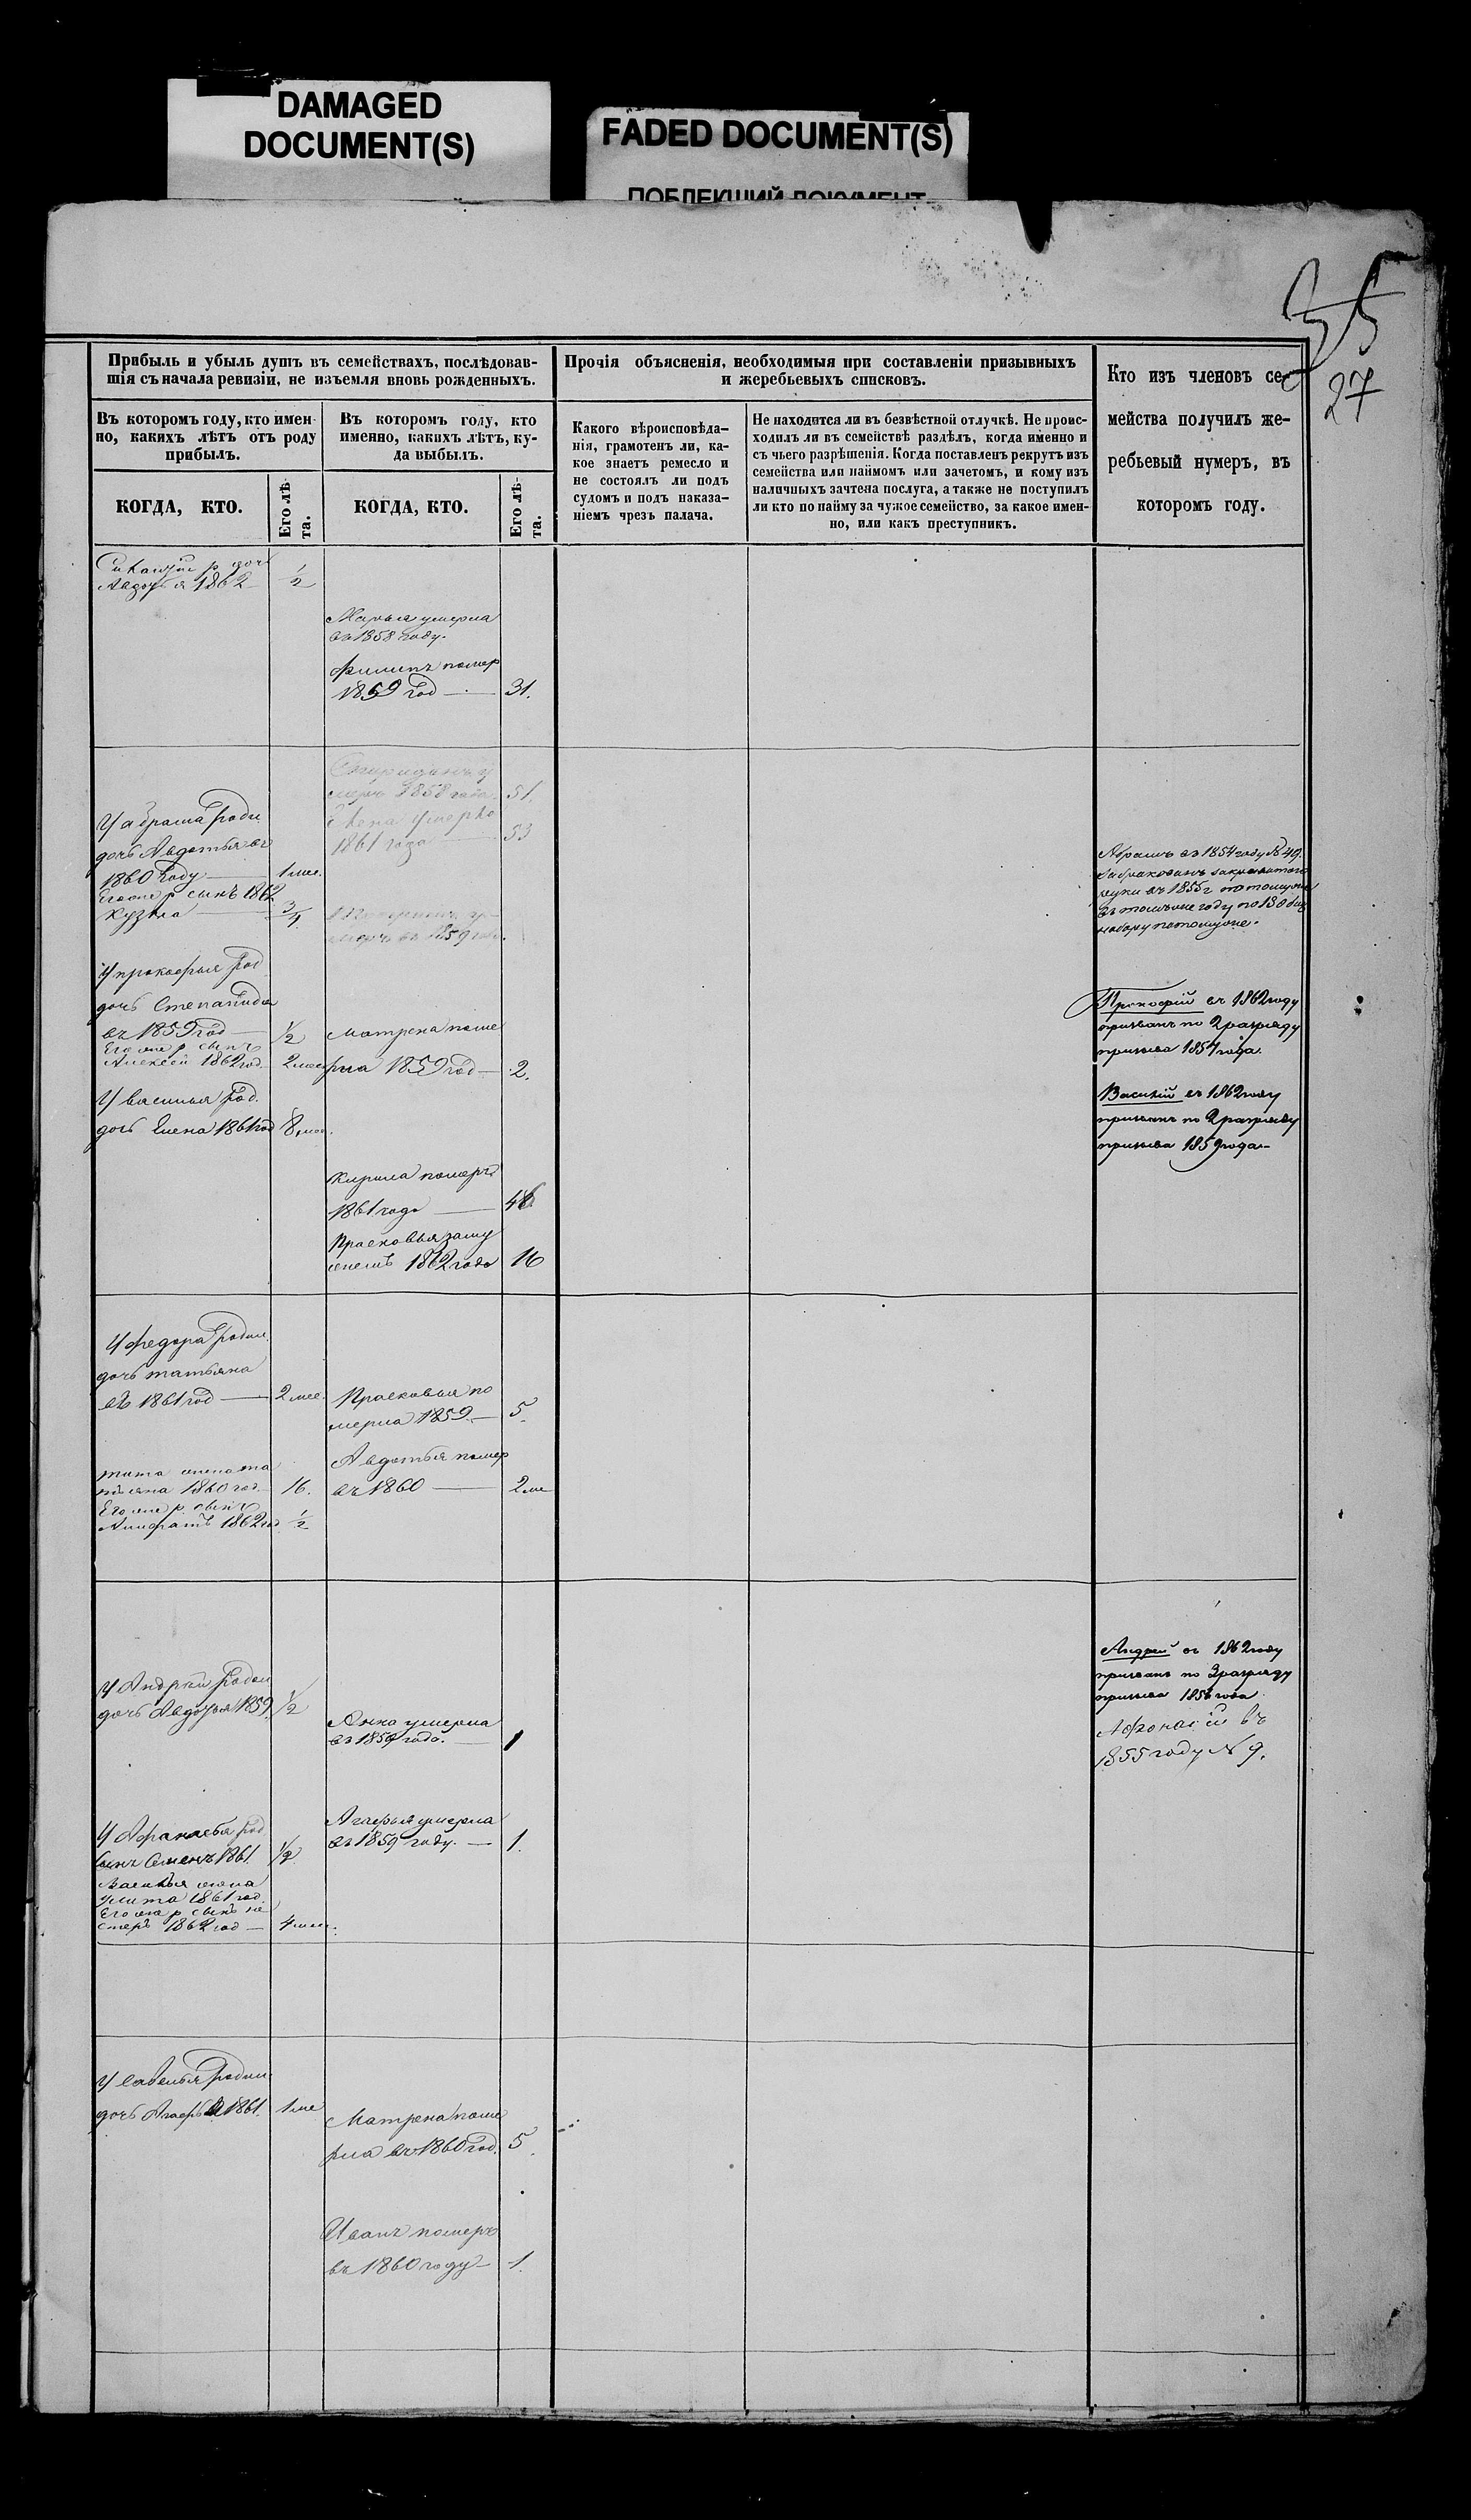 DAMAGED
DOCUMENT(S)
FADED DOCUMENT(S)
ПОБЛЕКШИЙ ДОКУМЕНТ
35
27
Прибыль и убыль душъ въ семействахъ, послѣдовав-
шія съ начала ревизіи, не изъемля вновь рожденныхъ.
Въ которомъ году, кто имен-
но, какихъ лѣтъ отъ роду
прибылъ.
КОГДА, КТО.
Его лѣ-
та.
Въ которомъ году, кто
именно, какихъ лѣтъ, ку-
да выбылъ.
КОГДА, КТО.
Его лѣ-
та.
Прочія объясненія, необходимыя при составленіи призывныхъ
и жеребьевыхъ списковъ.
Какого вѣроисповѣда-
нія, грамотенъ ли, ка-
кое знаетъ ремесло и
не состоялъ ли подъ
судомъ и подъ наказа-
ніемъ чрезъ палача.
Не находится ли въ безвѣстной отлучкѣ. Не проис-
ходилъ ли въ семействѣ раздѣлъ, когда именно и
съ чьего разрѣшенія. Когда поставленъ рекрутъ изъ
семейства или наймомъ или зачетомъ, и кому изъ
наличныхъ зачтена послуга, а также не поступилъ
ли кто по найму за чужое семейство, за какое имен-
но, или какъ преступникъ.
Кто изъ членовъ се-
мейства получилъ же-
ребьевый нумеръ, въ
которомъ году.
р доч
Авдотья 1862 1/2
Марья умерла
въ 1858 году.
Филипъ помер
1859 год — 31.
умеръ 1858 года 51.
жена умерла
1861 года 53
У абрама роди
дочь Авдотья въ
1860 году — 1 мес.
Его же р сынъ 1862
Кузма — 3/4
умеръ въ 1859 году.
У прокофья род
дочь Степанида
въ 1859 год — 1/2
Его же р сынъ
Алексей 1862 год 2 мес
Матрена поме
рла 1859 год — 2.
У василья род.
дочь Елена 1861 год 8 мес.
Кирила померъ
1861 года — 46
Прасковья заму
жемъ 1862 года 16
Абрамъ въ 1854 году № 49.
въ 1855 г
въ томъ же году по 13
набору
Прокофій въ 1862 году
призванъ по 2 разряду
призыва 1857 года.
Василій въ 1862 году
призванъ по 2 разряду
призыва 1859 года
У федора родил.
дочь татьяна
въ 1861 год — 2 мес.
Прасковья по
мерла 1859 — 5.
Авдотья помер
въ 1860 — 2 ме
тита жена та
1860 год 16.
Его же р сынъ
1862 год 1/2
У Андрея родил
дочь Авдотья 1859. 1/2
Анна умерла
въ 1859 года. — 1
Андрей въ 1862 году
призванъ по 3 разряду
призыва 1856 года
Афонасій въ
1855 году № 9.
У Афанасья род
сынъ Семенъ 1861. 1/2
Василья жена
улита 1861 год.
Его же р сынъ не
стеръ 1862 год — 4 мес.
Агафья умерла
въ 1859 году. — 1.
У савелья родил.
дочь Агафья 1861. 1 ме
Матрена поме
рла въ 1860 год. 5.
Иванъ померъ
въ 1860 году — 1.